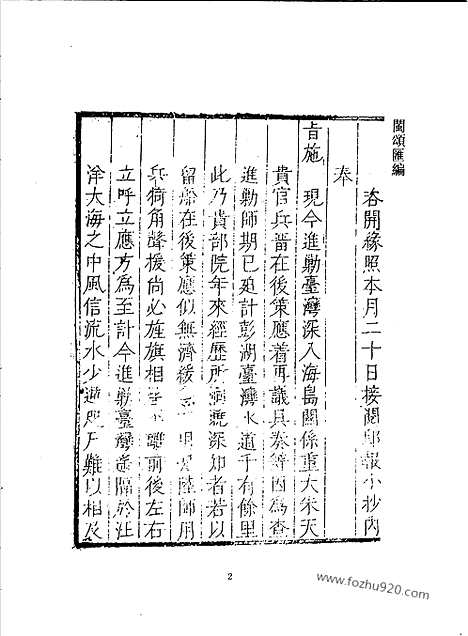 閩頌匯編
咨開緣照本月二十日接閱邸報小抄內
奉
旨施　現今進勦臺灣深入海島關係重大朱天
貴官兵普在後策應着再議具奏等因為查
進勦師期已迫計彭湖臺灣水道千有餘里
此乃貴部院年來經歷所　深知者若以
留船在後策應似無濟緩　陸師用
兵犄角聲援尚必旌旗相　前後左右
立呼立應方為至計今進勦臺灣遠隔於汪
洋大海之中風信流水少　難以相及
2
www.fozhu920.com